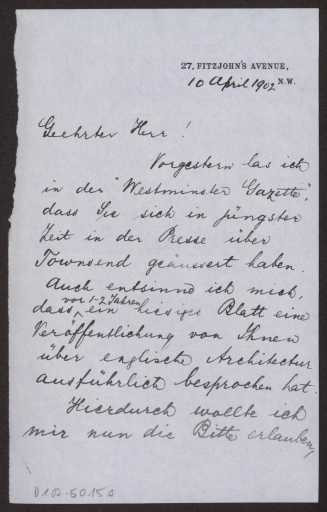 27, FITZJOHN'S AVENUE,
N.W.
10 April 1902
Geehrter Herr!
Vorgestern las ich
in der "Westminster Gazette",
dass Sie sich in jüngster
Zeit in der Presse über
Townsend geäussert haben.
Auch entsinne ich mich,
vor 1-2 Jahren
dass ein hiesiges Blatt eine
Veröffentlichung von Ihnen
über englische Architectur
ausführlich besprochen hat.
Hierdurch wollte ich
mir nun die Bitte erlauben,
D 102-5015a